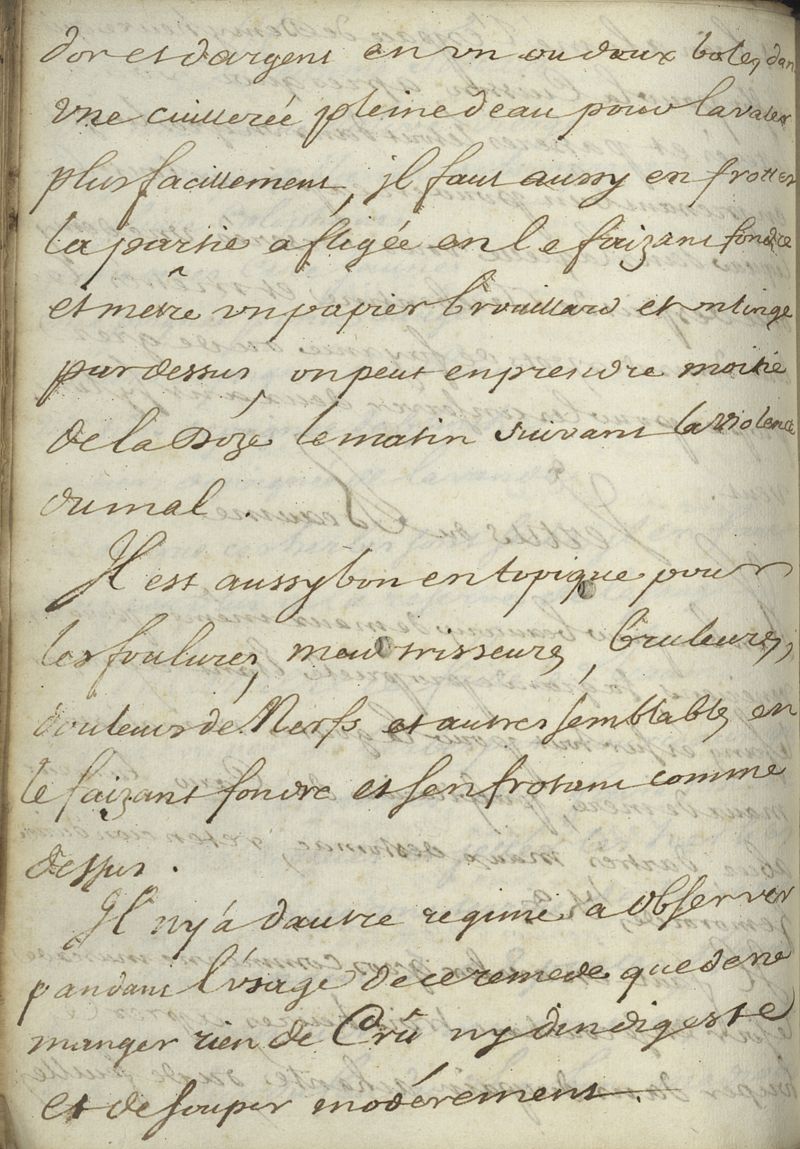 dor et dargent en vn ou deux boles dans
vne cuillereé pleine deau pour lavaler
plus facillement, jl faut aussy en frotter
la partie afligée en le faizant fondre
et metre vn papier brouillard et vn linge
pardessus, on peut en prendre moitie
de la Doze le matin suivant la violence
du mal.
Il est aussy bon en topique pour
les foulures, meurtrisseures, bruleures,
douleurs de Nerfs et autres semblables en
le faizant fondre et sen frotant comme
dessus.
Il ny á dautre regime a observer
pandant l'úsage de ce remede que de ne
manger rien de Crû ny dindigeste
et de souper modérement.